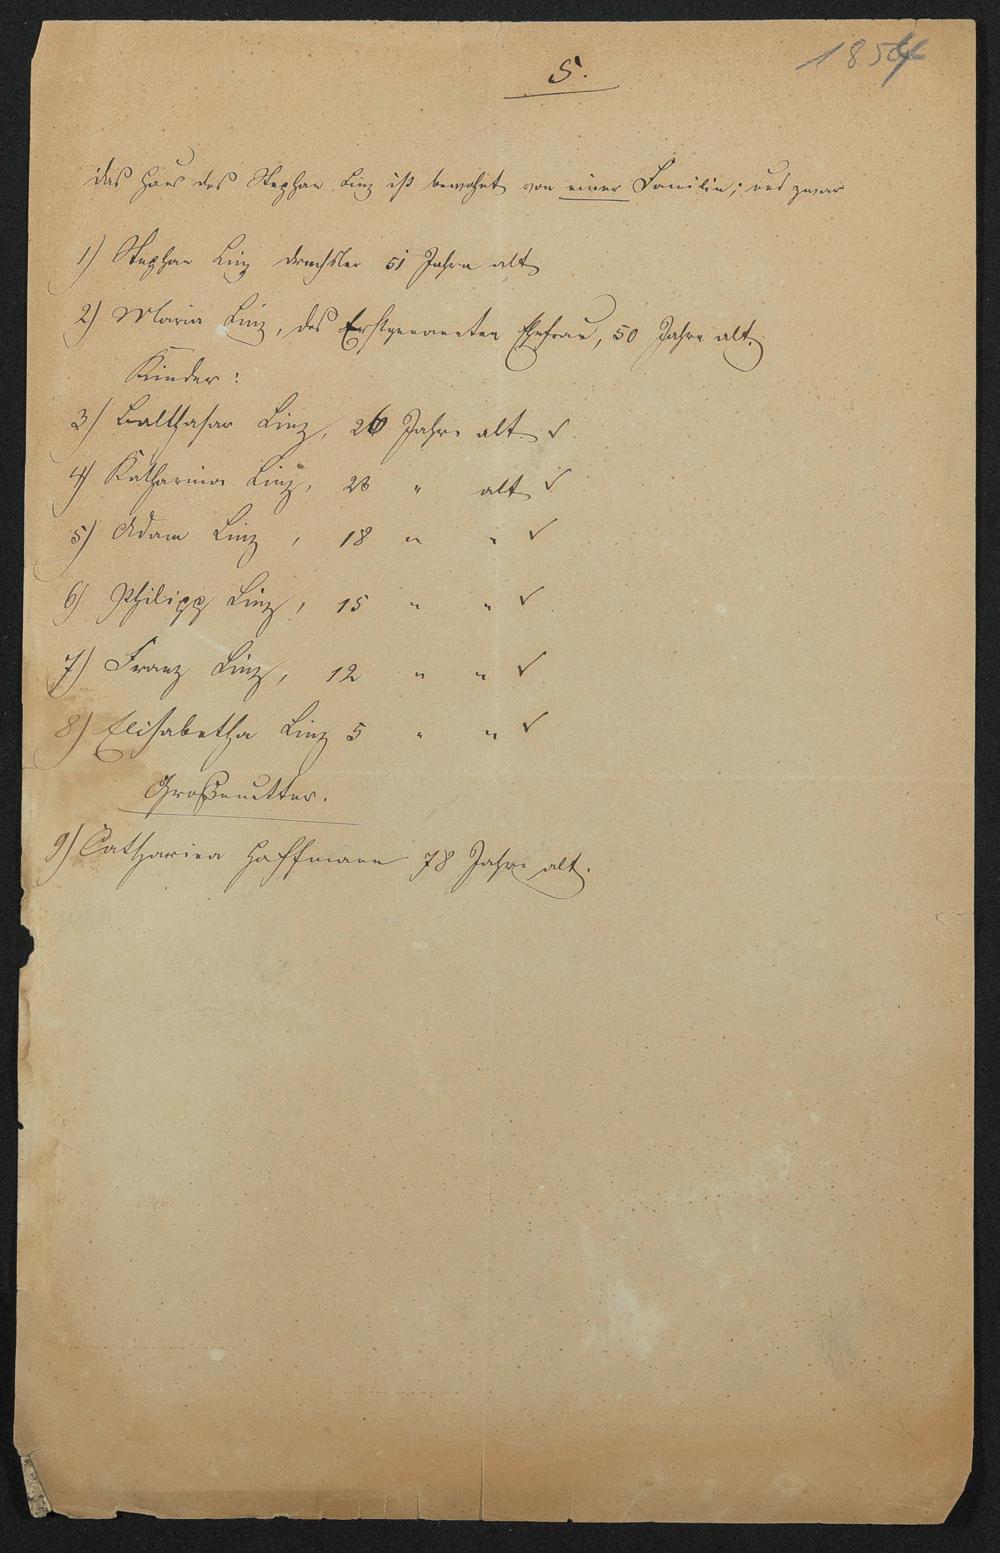 5.
1854
das Haus des Stephan Linz ist bewohnt von einer Familie; und zwar
1) Stephan Linz Drechsler 51 Jahre alt
2) Maria Linz, des Erstgenannten Ehefrau, 50 Jahre alt.
Kinder:
3) Balthasar Linz, 26 Jahre alt ✓
4) Katharina Linz, 23 " alt ✓
5) Adam Linz, 18 " " ✓
6) Philipp Linz, 15 " " ✓
7) Franz Linz, 12 " " ✓
8) Elisabetha Linz 5 " " ✓
Großmutter.
9) Catharina Hoffmann 78 Jahre alt.